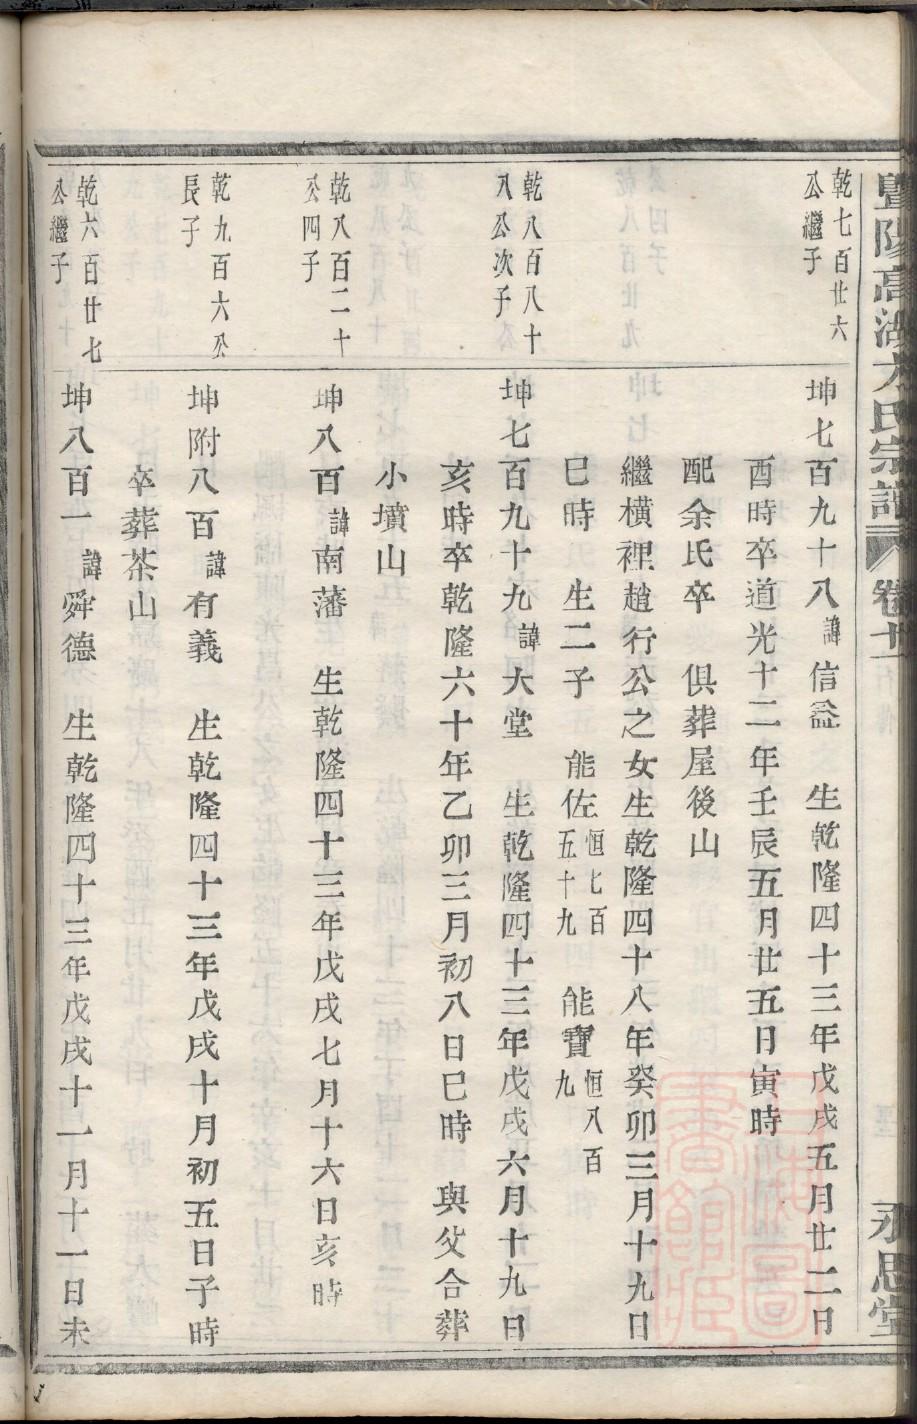 暨陽高湖方氏宗譜 卷十一 永思堂
乾七百廿六
公繼子
坤七百九十八諱信謚 生乾隆四十三年戊戌五月廿二日
酉時卒道光十二年壬辰五月廿五日寅時
配余氏卒 俱葬屋後山
繼橫裡趙行公之女生乾隆四十八年癸卯三月十九日
巳時 生二子 能佐恒七百五十九 能寶恒八百九
乾八百八十
八公次子
坤七百九十九諱大堂 生乾隆四十三年戊戌六月十九日
亥時卒乾隆六十年乙卯三月初八日巳時 與父合葬
小墳山
乾八百二十
公四子
坤八百諱南藩 生乾隆四十三年戊戌七月十六日亥時
乾九百六公
長子
坤附八百諱有義 生乾隆四十三年戊戌十月初五日子時
卒葬茶山
乾六百廿七
公繼子
坤八百一諱舜德 生乾隆四十三年戊戌十一月十一日未